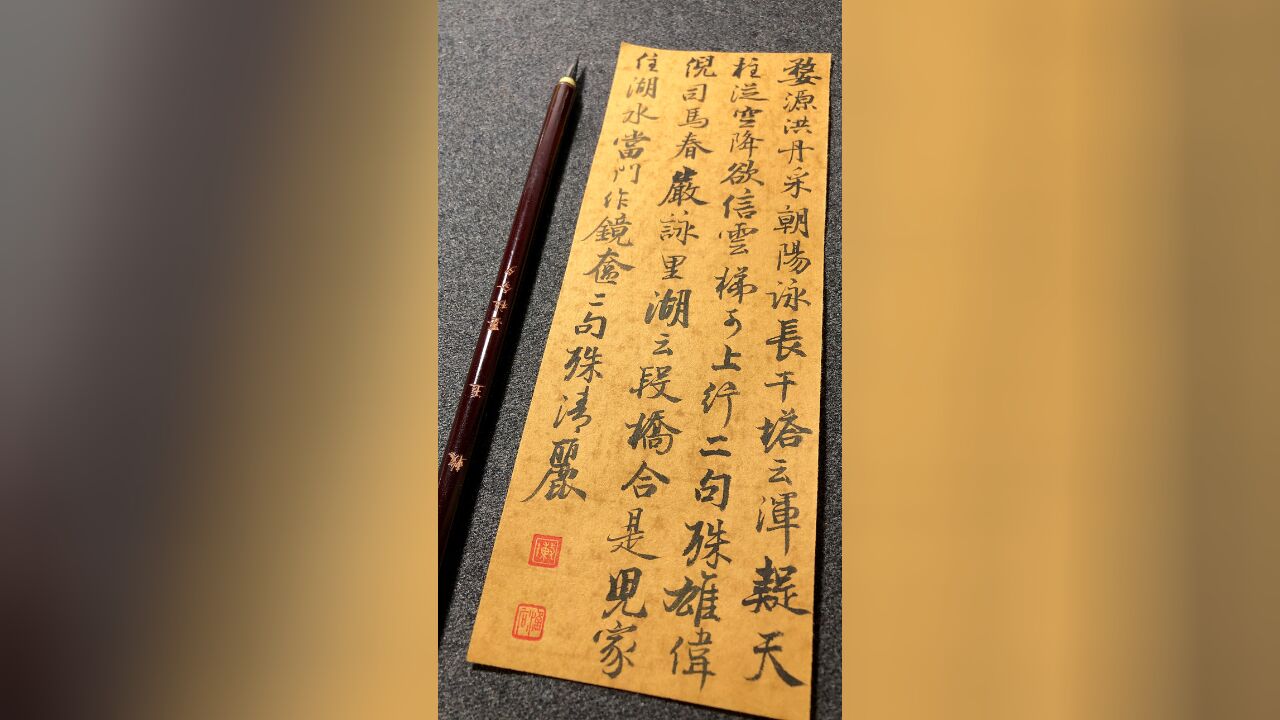 婺源洪丹采朝陽詠長干塔云渾疑天
柱從空降欲信雲梯可上行二句殊雄偉
倪司馬春巖詠里湖云段橋合是兒家
住湖水當門作鏡奩二句殊清麗